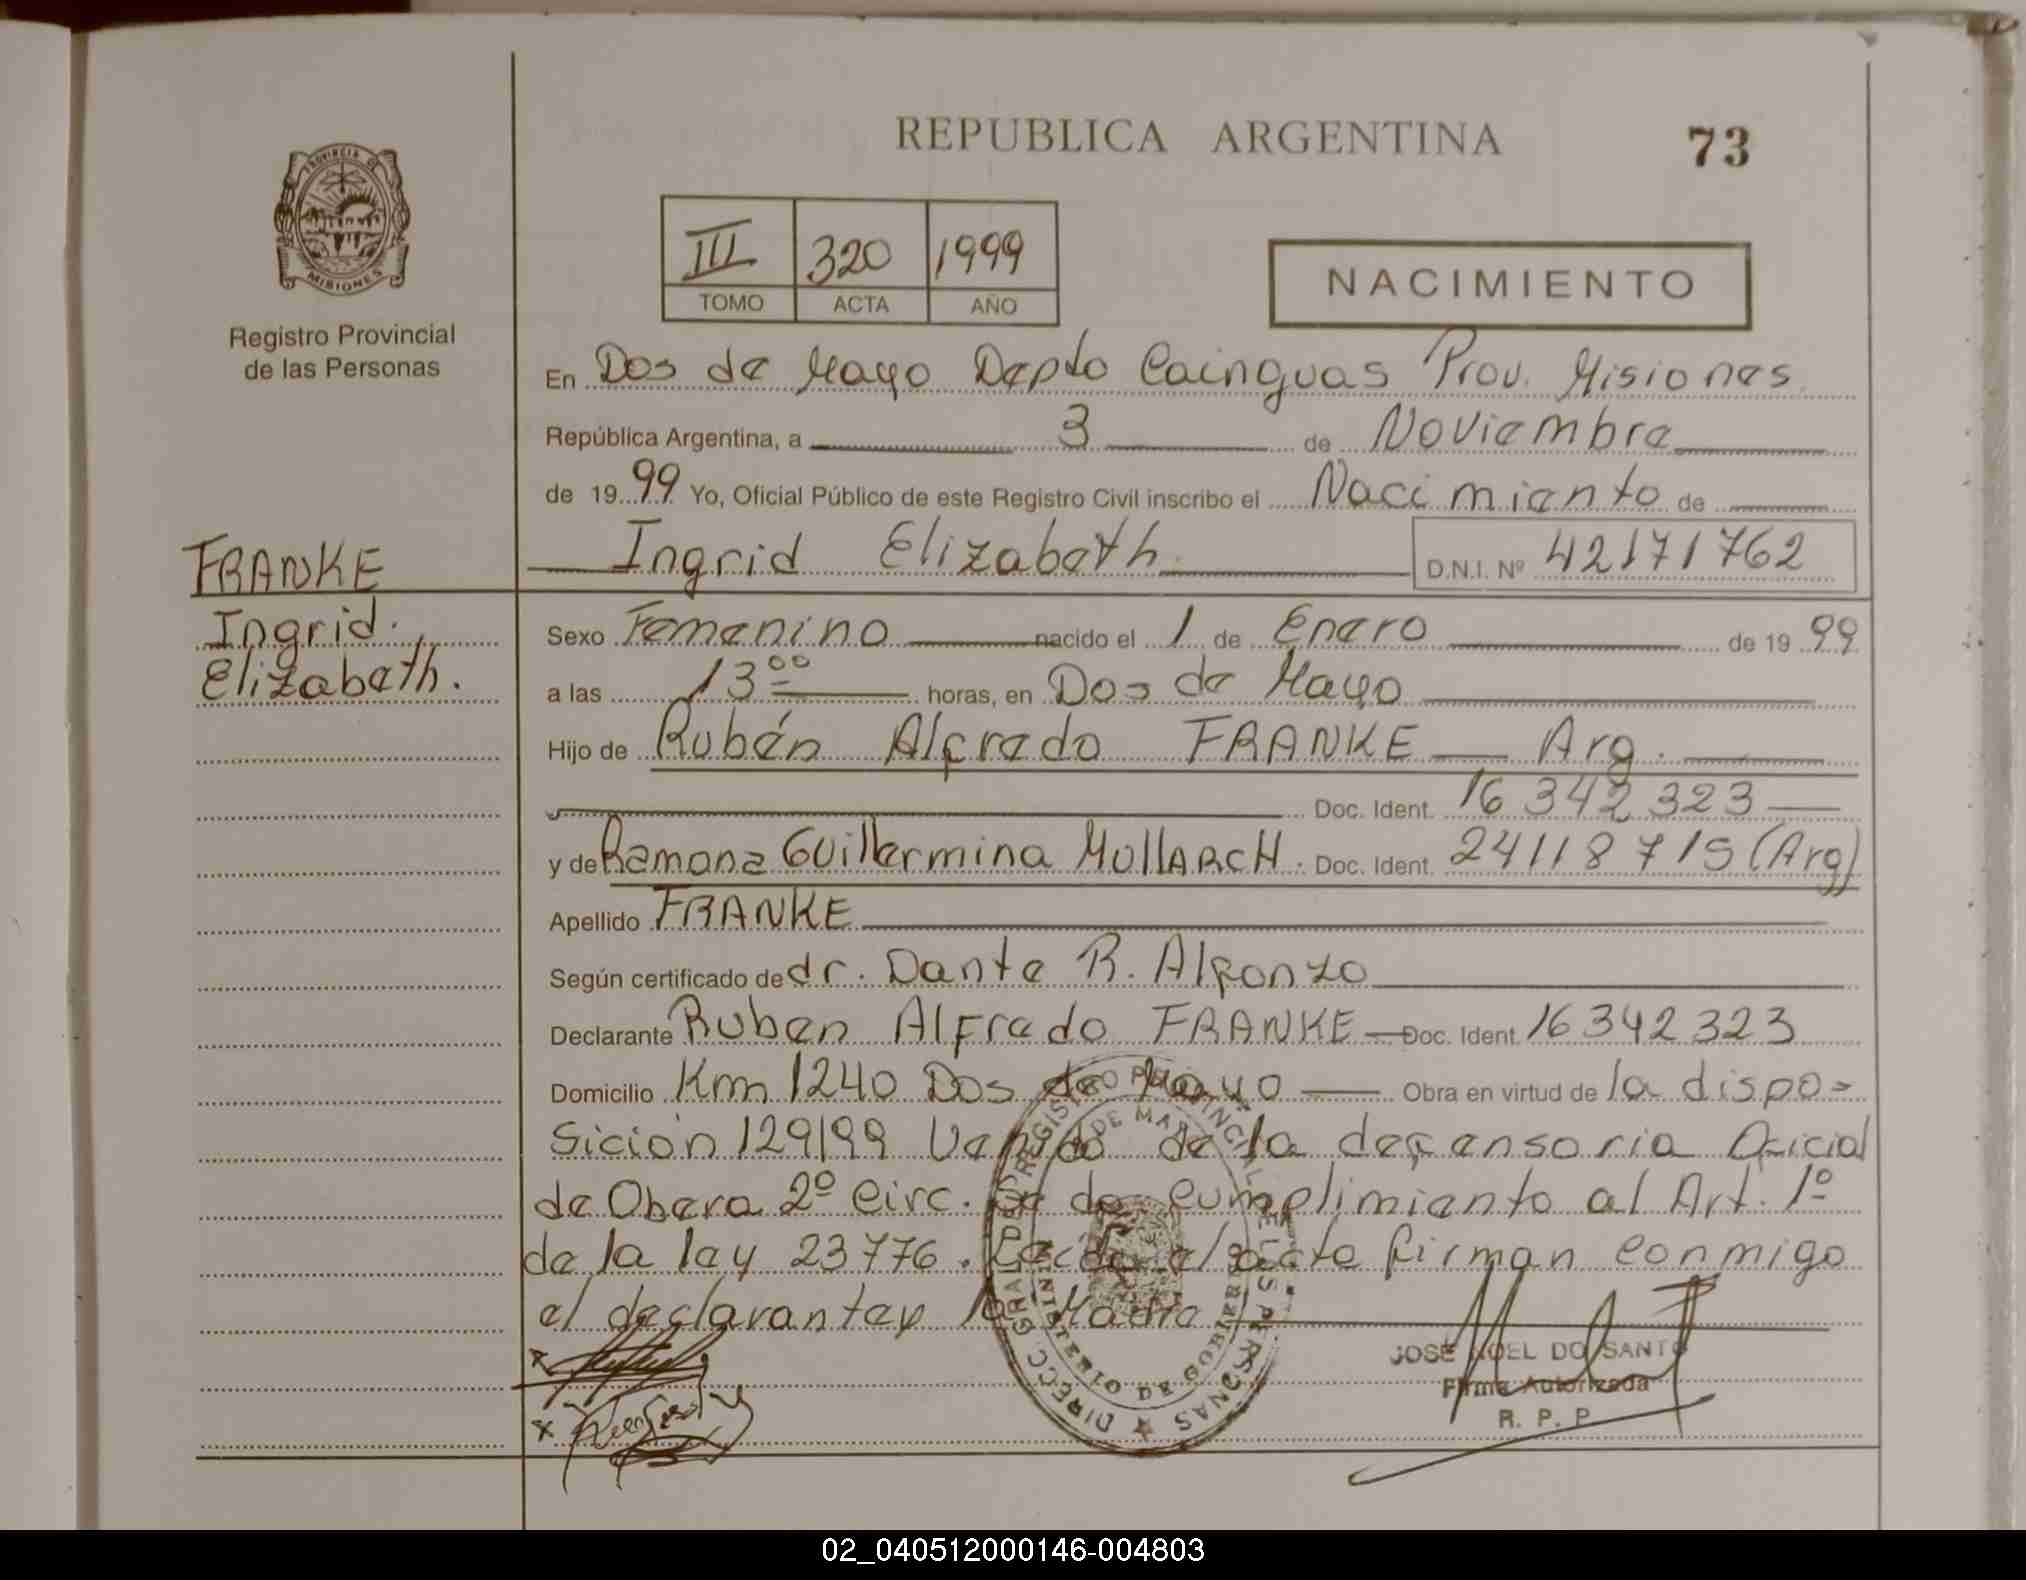 REPUBLICA ARGENTINA
73
PROVINCIA D
MISIONES
Registro Provincial
de las Personas
III 320 1999
TOMO ACTA AÑO
NACIMIENTO
En Dos de Mayo Depto Cainguas Prov. Misiones
República Argentina, a 3 de Noviembre
de 1999 Yo, Oficial Público de este Registro Civil inscribo el Nacimiento de
FRANKE
Ingrid Elizabeth D.N.I. Nº 42171762
Ingrid.
Elizabeth.
Sexo Femenino nacido el 1 de Enero de 1999
a las 13 00 horas, en Dos de Mayo
Hijo de Rubén Alfredo FRANKE Arg.
Doc. Ident. 16 342 323
y de Ramona Guillermina MullARCH. Doc. Ident. 24118715 (Arg)
Apellido FRANKE
Según certificado de dr. Dante R. Alfonzo
Declarante Ruben Alfredo FRANKE Doc. Ident. 16342323
Domicilio Km 1240 Dos de Mayo Obra en virtud de la dispo=
sición 129/99 Venida de la defensoria Oficial
de Obera 2º circ. Se da cumplimiento al Art. 1º
de la ley 23776. Leida el acto firman conmigo
el declarante y la Madre
DIRECC GRAL DEL REGISTRO PROVINCIAL DE LAS PERSONAS
MINISTERIO DE GOBIERNO
DE MAYO
JOSE NOEL DO SANTO
Firma Autorizada
R. P. P.
02_040512000146-004803